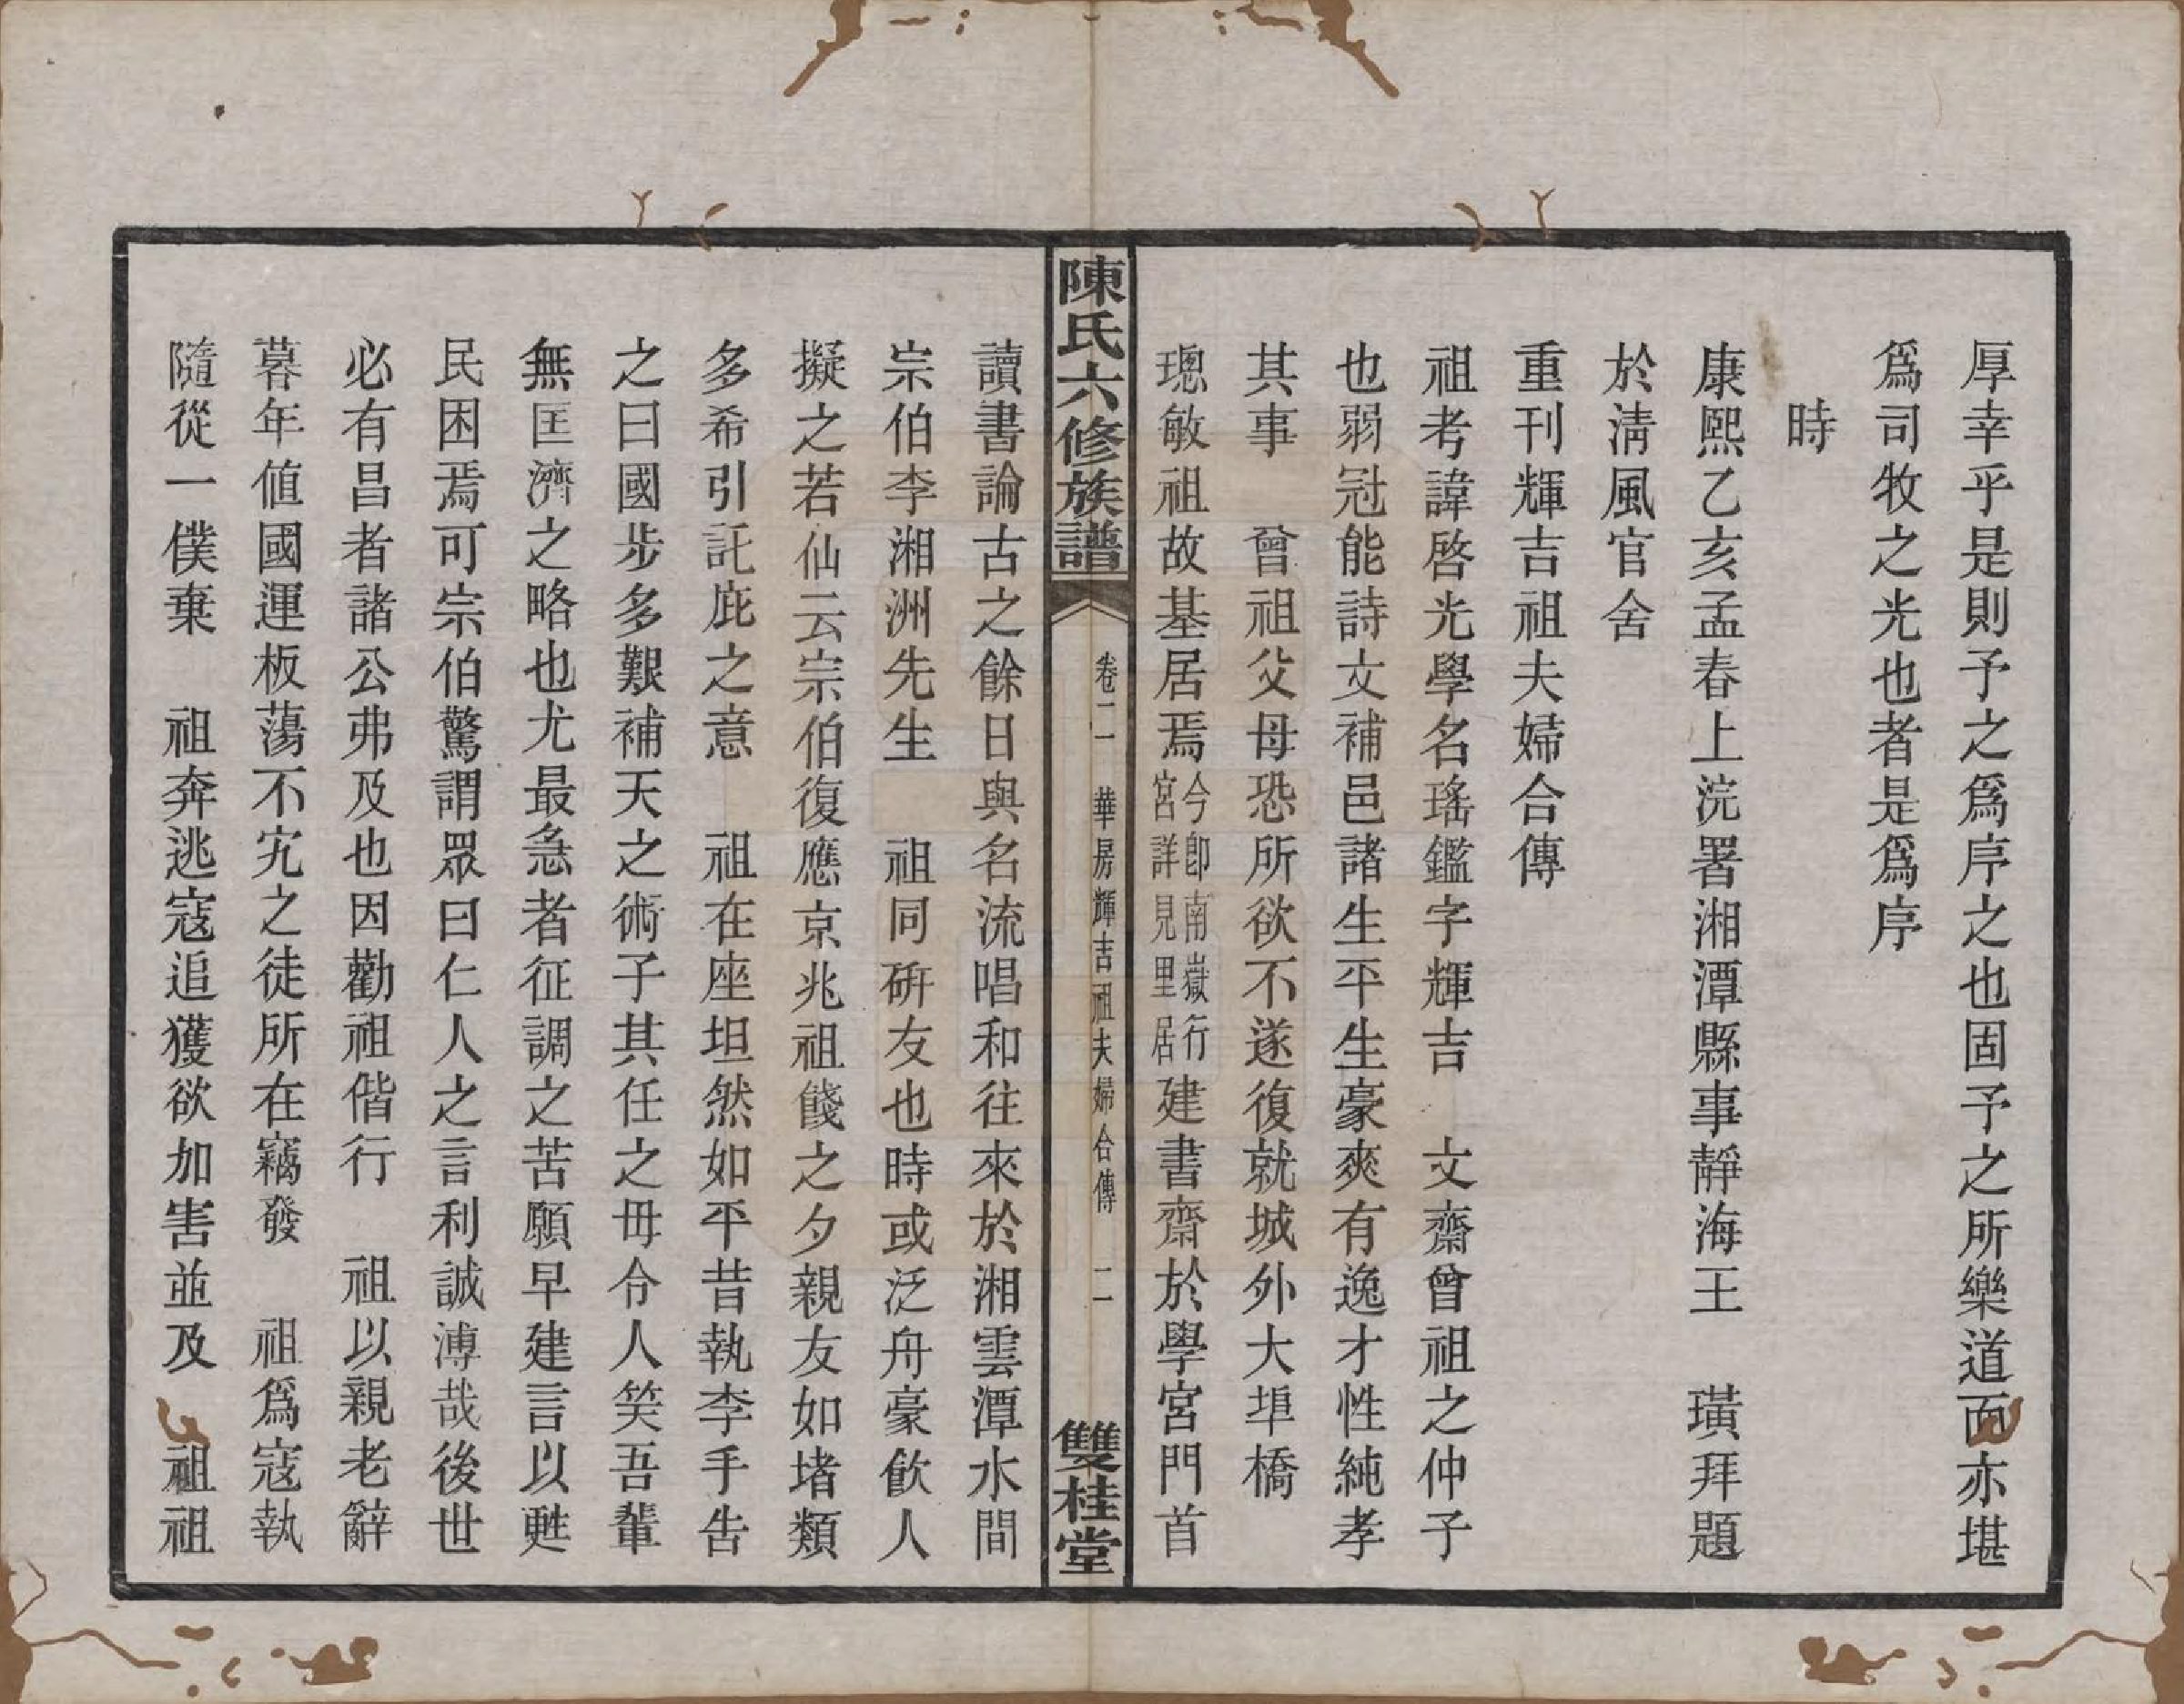 厚幸乎是則予之爲序之也固予之所樂道而亦堪
爲司牧之光也者是爲序
時
康熙乙亥孟春上浣署湘潭縣事靜海王　璜拜題
於淸風官舍
重刊輝吉祖夫婦合傳
祖考諱啓光學名瑤鑑字輝吉　文齋曾祖之仲子
也弱冠能詩文補邑諸生平生豪爽有逸才性純孝
其事　曾祖父母恐所欲不遂復就城外大埠橋
璁敏祖故基居焉今卽南嶽行宮詳見里居建書齋於學宮門首
陳氏六修族譜　卷二　華房輝吉祖夫婦合傳　二　雙桂堂
讀書論古之餘日與名流唱和往來於湘雲潭水間
宗伯李湘洲先生　祖同硏友也時或泛舟豪飮人
擬之若仙云宗伯復應京兆祖餞之夕親友如堵類
多希引託庇之意　祖在座坦然如平昔執李手告
之曰國步多艱補天之術子其任之毋令人笑吾輩
無匡濟之略也尤最急者征調之苦願早建言以甦
民困焉可宗伯驚謂眾曰仁人之言利誠溥哉後世
必有昌者諸公弗及也因勸祖偕行　祖以親老辭
暮年值國運板蕩不宄之徒所在竊發　祖爲寇執
隨從一僕棄　祖奔逃寇追獲欲加害並及　祖祖